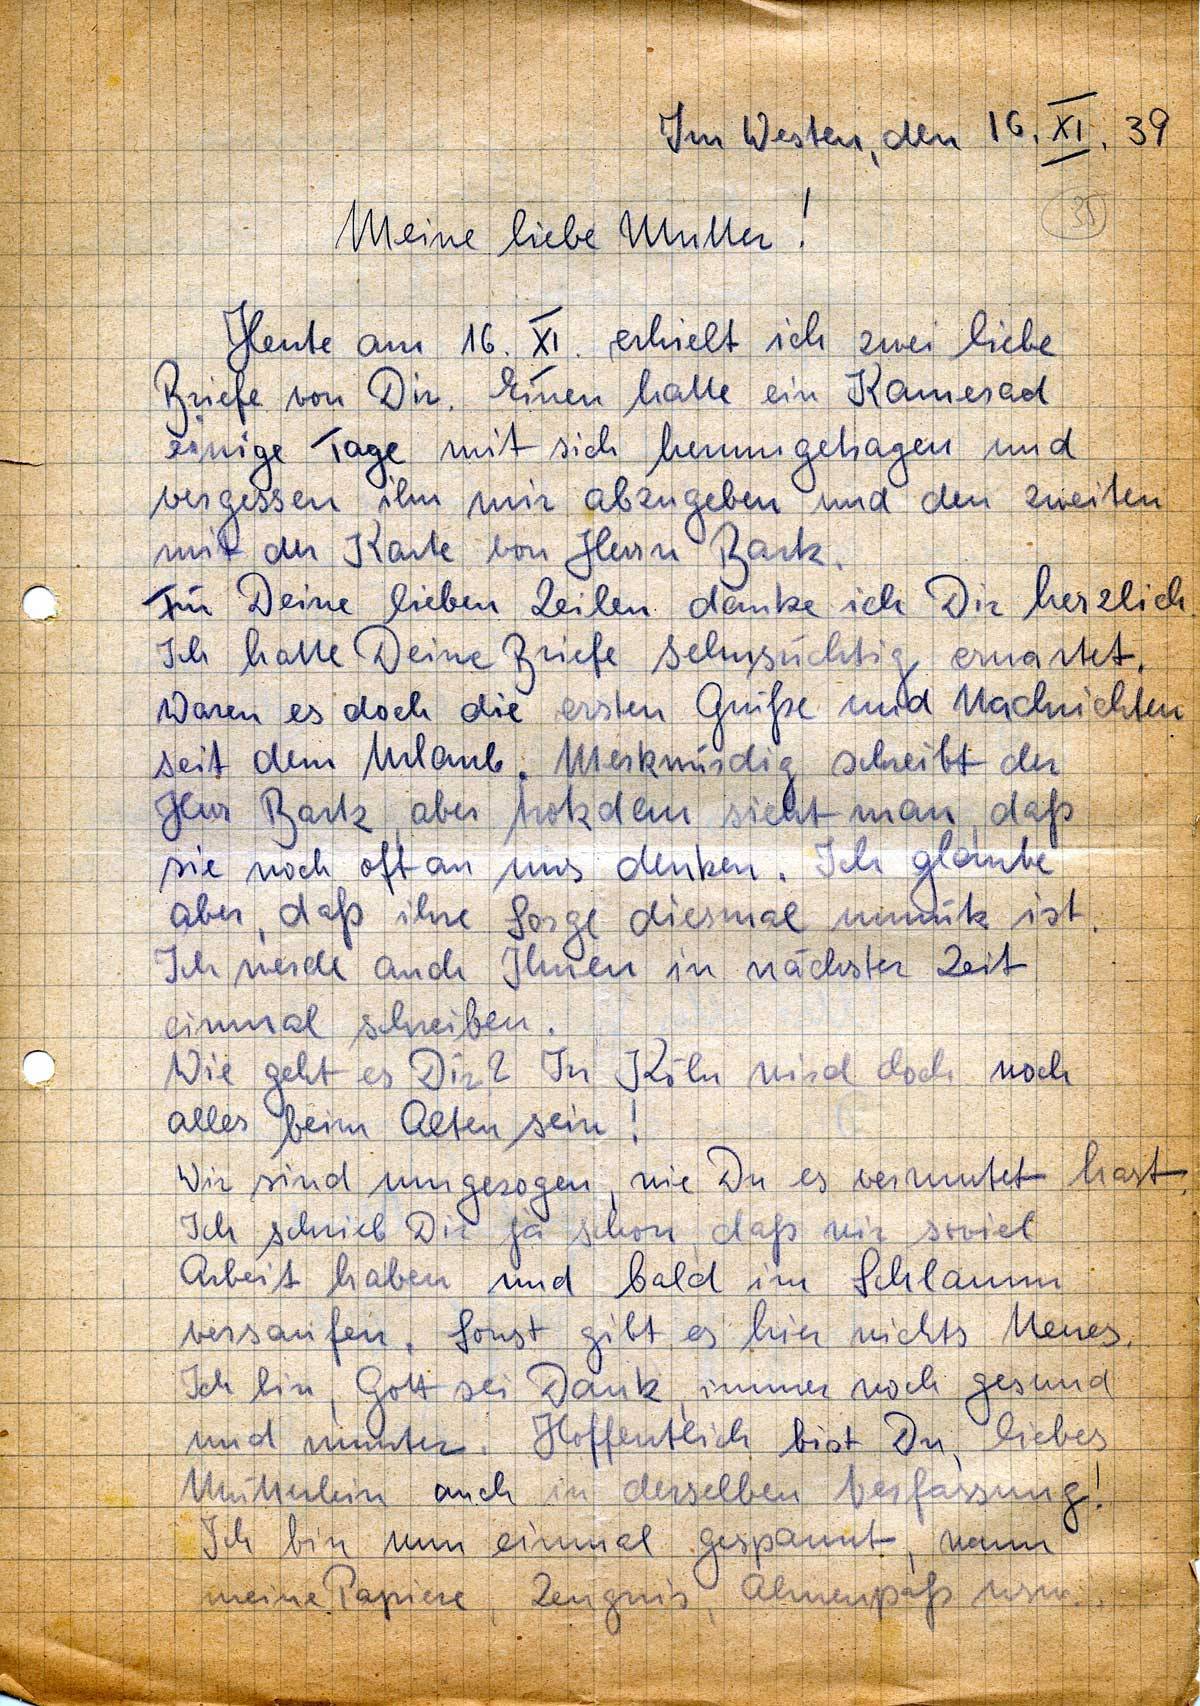 Im Westen, den 16. XI. 39
35
Meine liebe Mutter!
Heute am 16. XI. erhielt ich zwei liebe
Briefe von Dir. Einen hatte ein Kamerad
einige Tage mit sich herumgetragen und
vergessen ihn mir abzugeben und den zweiten
mit der Karte von Herrn Bark.
Für Deine lieben Zeilen danke ich Dir herzlich
Ich hatte Deine Briefe sehnsüchtig erwartet.
Waren es doch die ersten Grüße und Nachrichten
seit dem Urlaub. Merkwürdig schreibt der
Herr Bark, aber trotzdem sieht man, daß
sie noch oft an uns denken. Ich glaube
aber, daß ihre Sorge diesmal unnütz ist.
Ich werde auch Ihnen in nächster Zeit
einmal schreiben.
Wie geht es Dir? In Köln wird doch noch
alles beim Alten sein!
Wir sind umgezogen, wie Du es vermutet hast.
Ich schrieb Dir ja schon, daß wir soviel
Arbeit haben und bald im Schlamm
versaufen. Sonst gibt es hier nichts Neues.
Ich bin, Gott sei Dank, immer noch gesund
und munter. Hoffentlich bist Du, liebes
Mütterlein auch in derselben Verfassung!
Ich bin nun einmal gespannt, wann
meine Papiere, Zeugnis, Ahnenpaß usw.